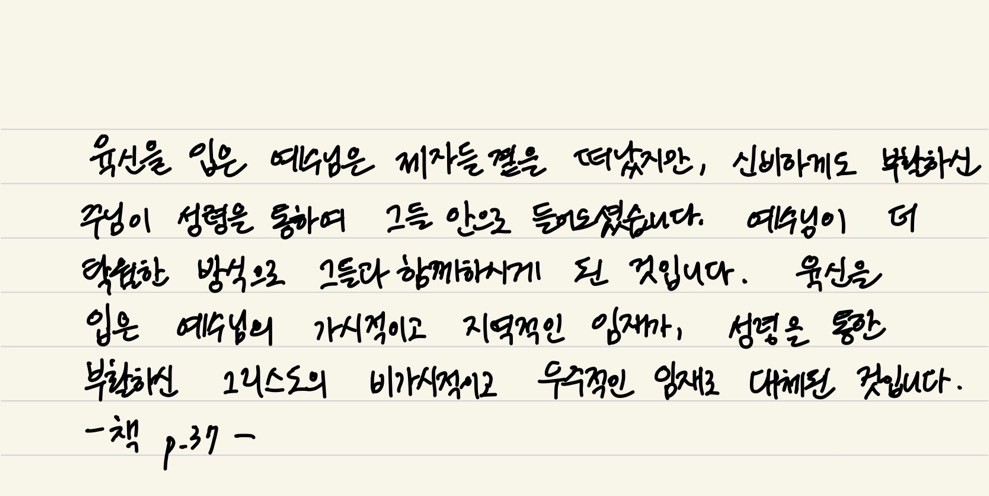 육신을 입은 예수님은 제자들 곁을 떠났지만, 신비하게도 부활하신
주님이 성령을 통하여 그들 안으로 들어오셨습니다. 예수님이 더
탁월한 방식으로 그들과 함께하시게 된 것입니다. 육신을
입은 예수님의 가시적이고 지역적인 임재가, 성령을 통한
부활하신 그리스도의 비가시적이고 우주적인 임재로 대체된 것입니다.
- 책 p.37 -